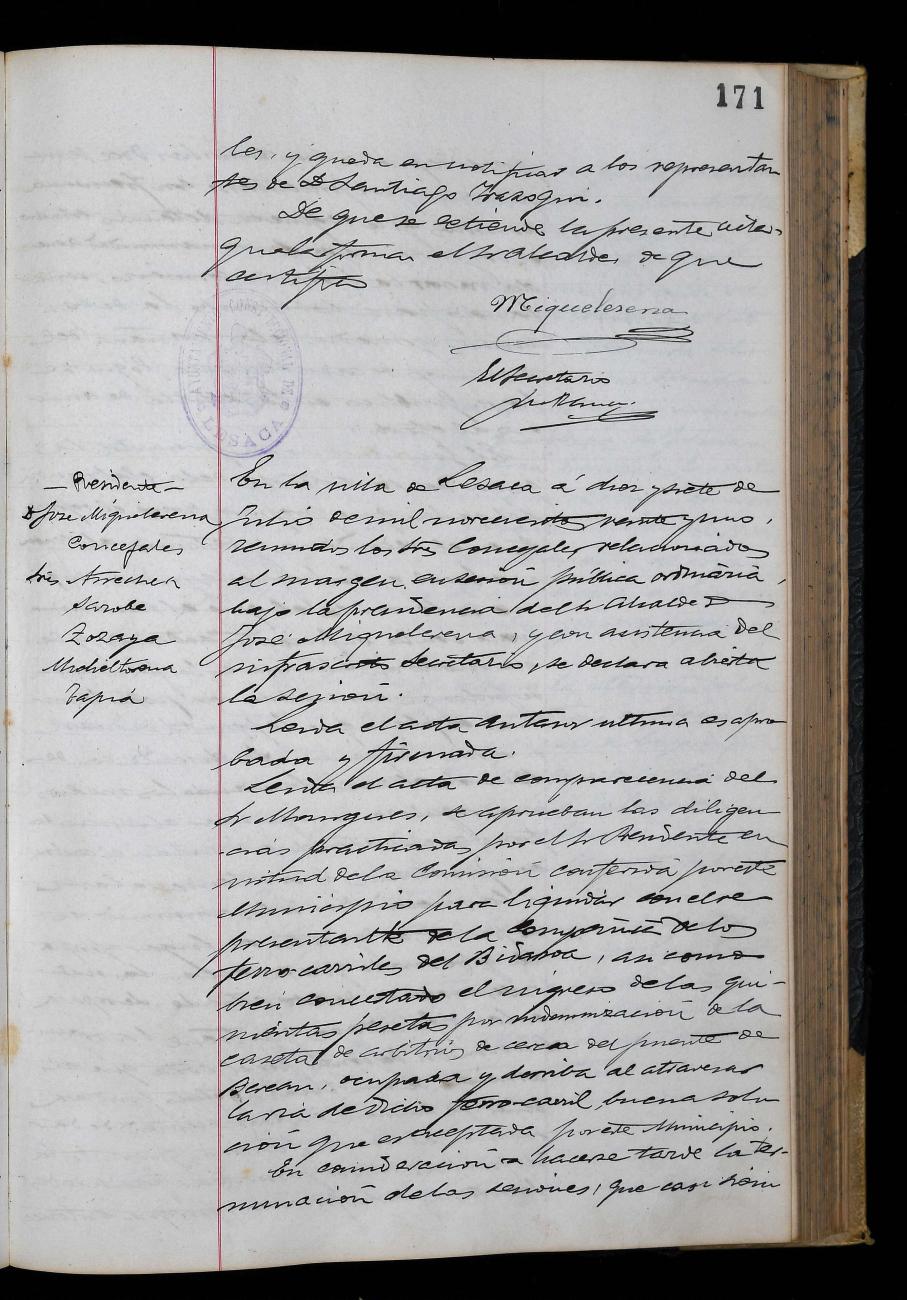 171
les, y queda en notificar a los representan
tes de D Santiago Irazoqui.
De que se estiende la presente acta
que la firma el Sr Alcalde, de que
certifico
Miquelerena
El Secretario
AYUNTAMIENTO CONSTITUCIONAL DE LESACA
— Presidente —
D José Miquelerena
Concejales
Sres Arrechea
Sarobe
Zozaya
Micheltorena
Tapia
En la villa de Lesaca á diez y siete de
Julio de mil novecientos veinte y uno,
reunidos los Srs Concejales relacionados
al margen, en sesión pública ordinaria,
bajo la presidencia del Sr Alcalde D
José Miquelerena, y con asistencia del
infrascrito Secretario, se declara abierta
la sesión.
Leida el acta anterior ultima es apro
bada y firmada.
Leida el acta de comparecencia del
Sr Monguers, se aprueban las diligen
cias practicadas por el Sr Presidente en
virtud de la Comisión conferida por este
Municipio para liquidar con el re
presentante de la Compañia de los
ferro-carriles del Bidasoa, asi como
bien concertado el ingreso de las qui-
nientas pesetas por indemnización de la
caseta de arbitrios de cerca del puente de
Berean, ocupada y derriba al atravesar
la via de dicho ferro-carril, buena solu
ción que es aceptada por este Municipio.
En consideración a hacerse tarde la ter-
minación de las sesiones, que casi siem